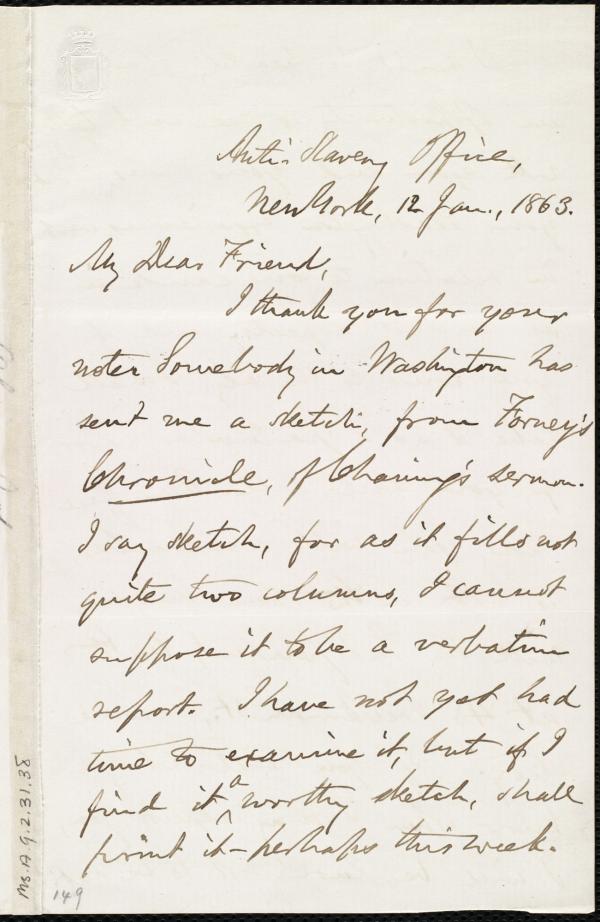 Anti-Slavery Office,
New York, 12 Jan., 1863.
My Dear Friend,
I thank you for your
note. Somebody in Washington has
sent me a sketch, from Forney's
Chronicle, of Channing's sermon.
I say sketch, for as it fills not
quite two columns, I cannot
suppose it to be a verbatim
report. I have not yet had
time to examine it, but if I
find it a worthy sketch, shall
print it – perhaps this week.
149
Ms. A. 9. 2. 31. 38